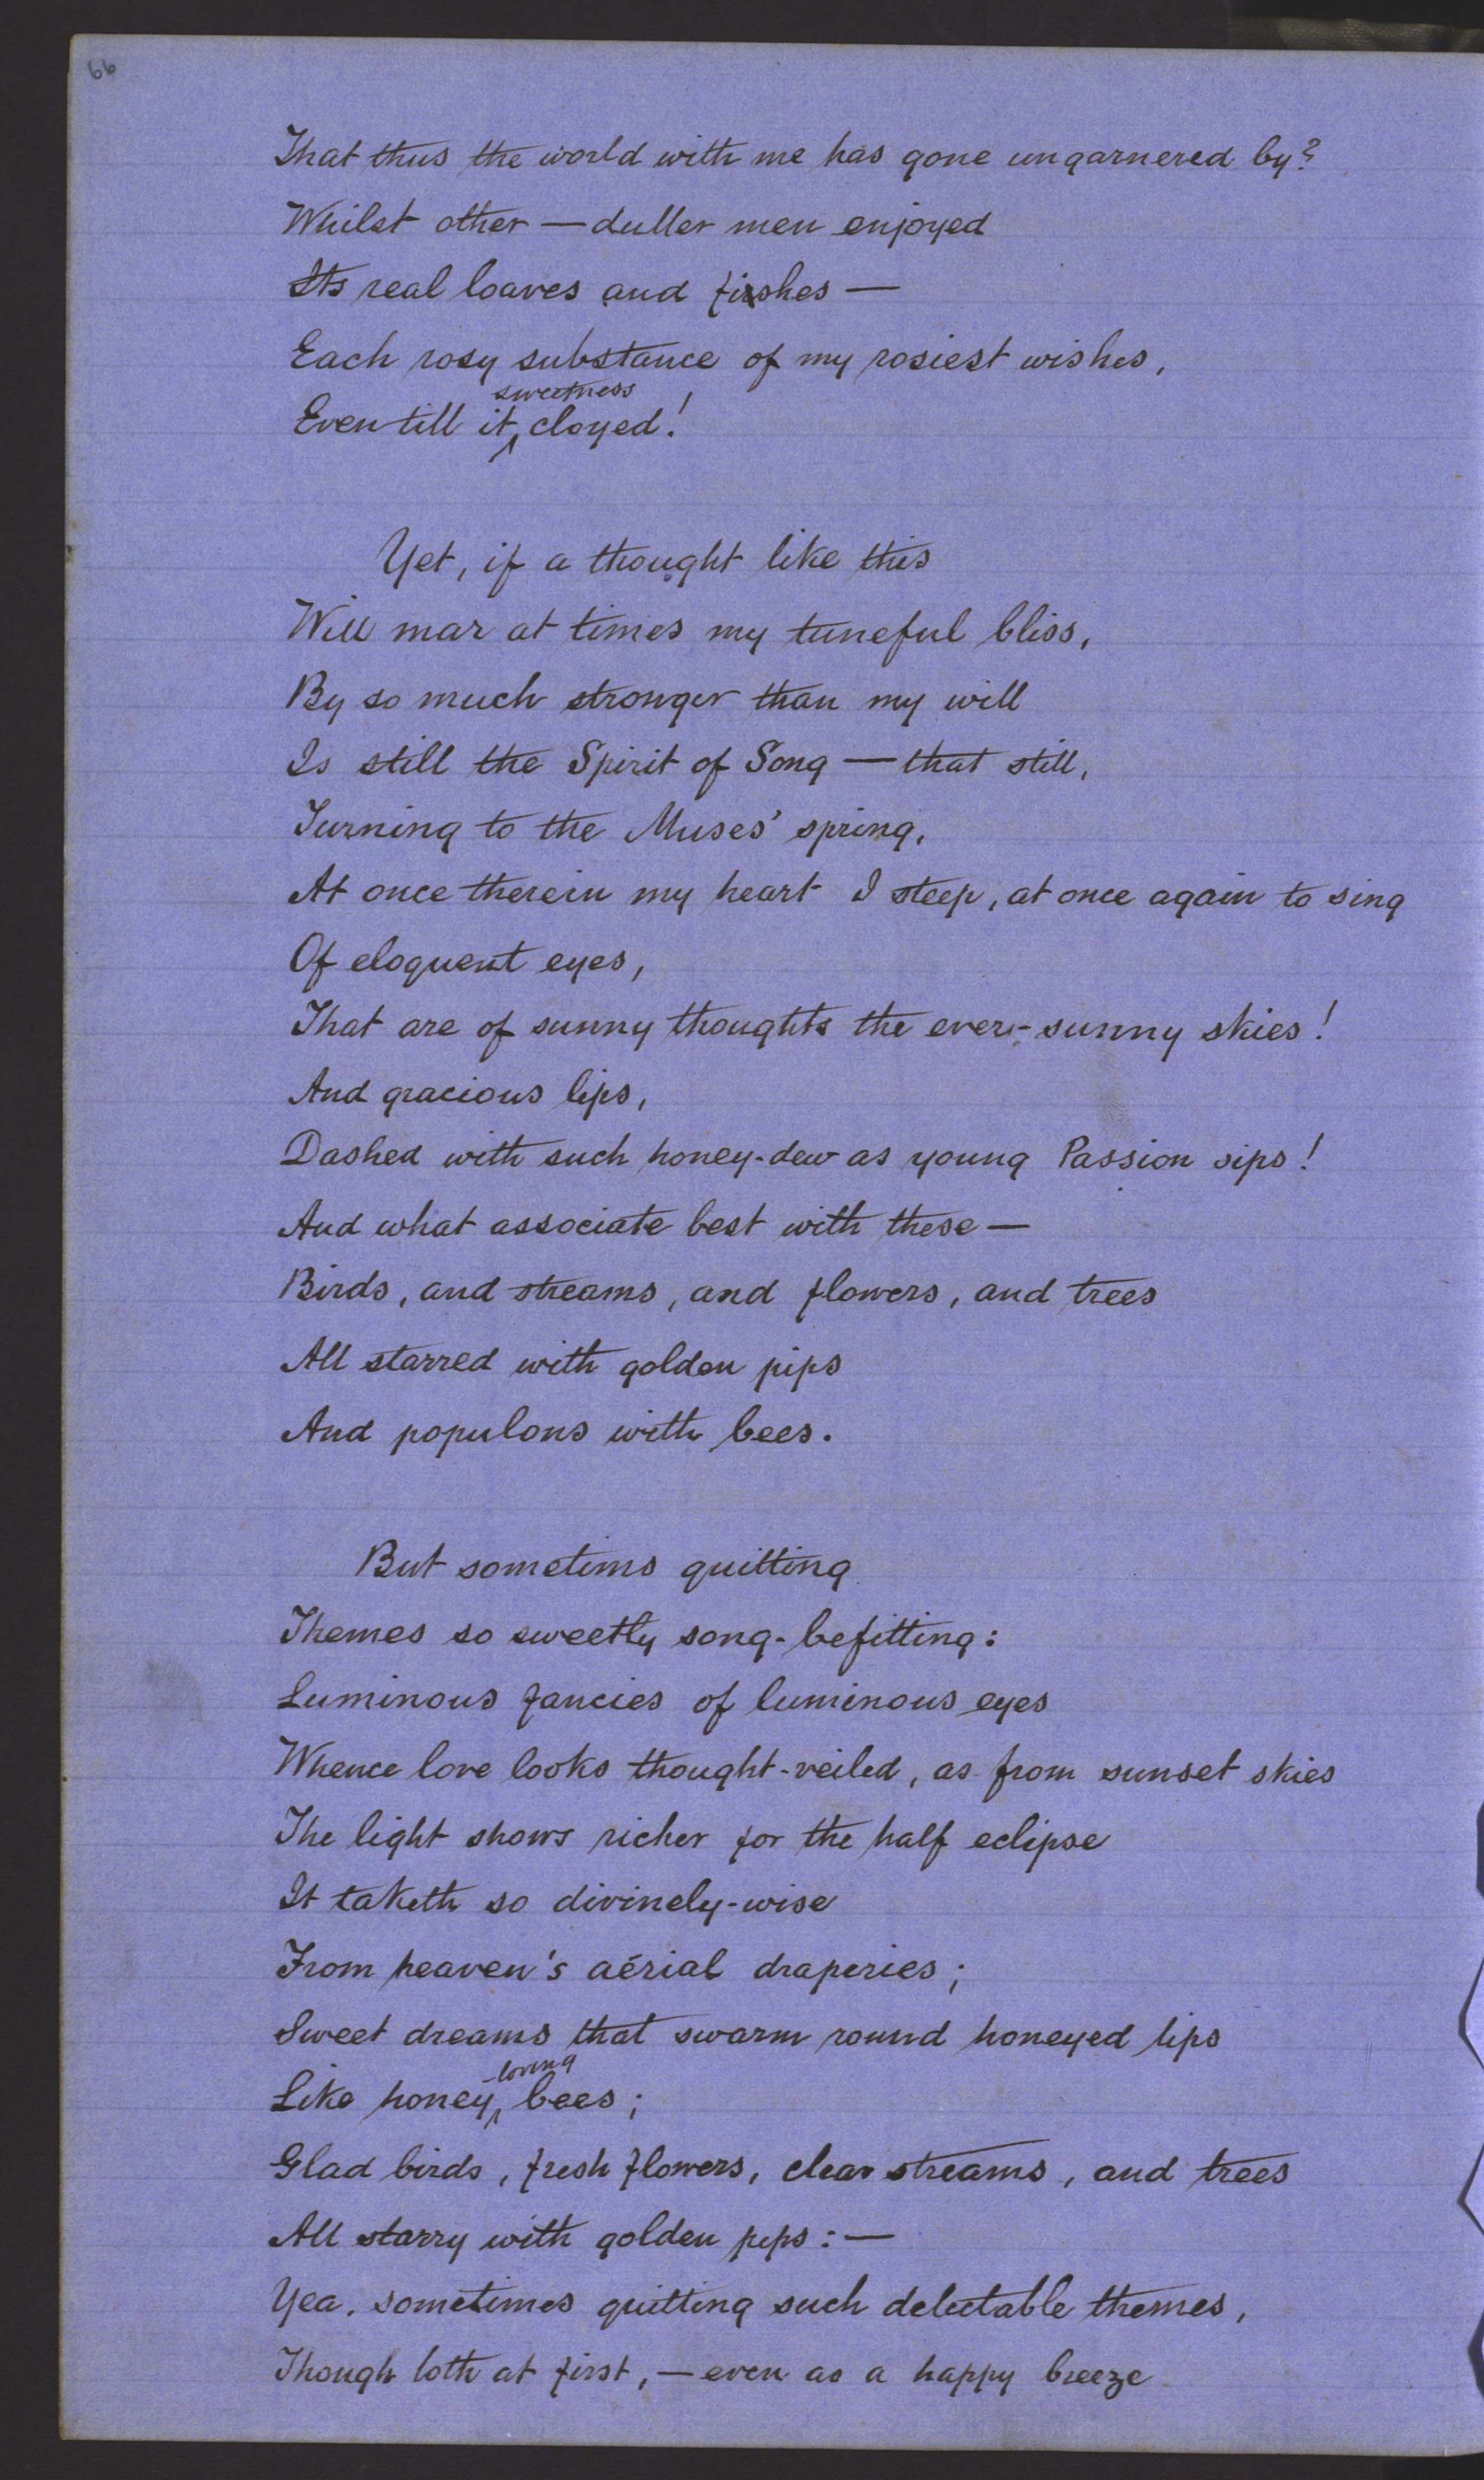 66
That thus the world with me has gone ungarnered by?
Whilst other — duller men enjoyed
Its real loaves and fishes —
Each rosy substance of my rosiest wishes,
Even till its sweetness cloyed!
Yet, if a thought like this
Will mar at times my tuneful bliss,
By so much stronger than my will
Is still the Spirit of Song — that still,
Turning to the Muses' spring,
At once therein my heart I steep, at once again to sing
Of eloquent eyes,
That are of sunny thoughts the ever-sunny skies!
And gracious lips,
Dashed with such honey-dew as young Passion sips!
And what associate best with these —
Birds, and streams, and flowers, and trees
All starred with golden pips
And populous with bees.
But sometims quitting
Themes so sweetly song-befitting:
Luminous fancies of luminous eyes
Whence love looks thought-veiled, as from sunset skies
The light shows richer for the half eclipse
It taketh so divinely-wise
From heaven's aërial draperies;
Sweet dreams that swarm round honeyed lips
Like honey-loving bees;
Glad birds, fresh flowers, clear streams, and trees
All starry with golden pips: —
Yea, sometimes quitting such delectable themes,
Though loth at first, — even as a happy breeze